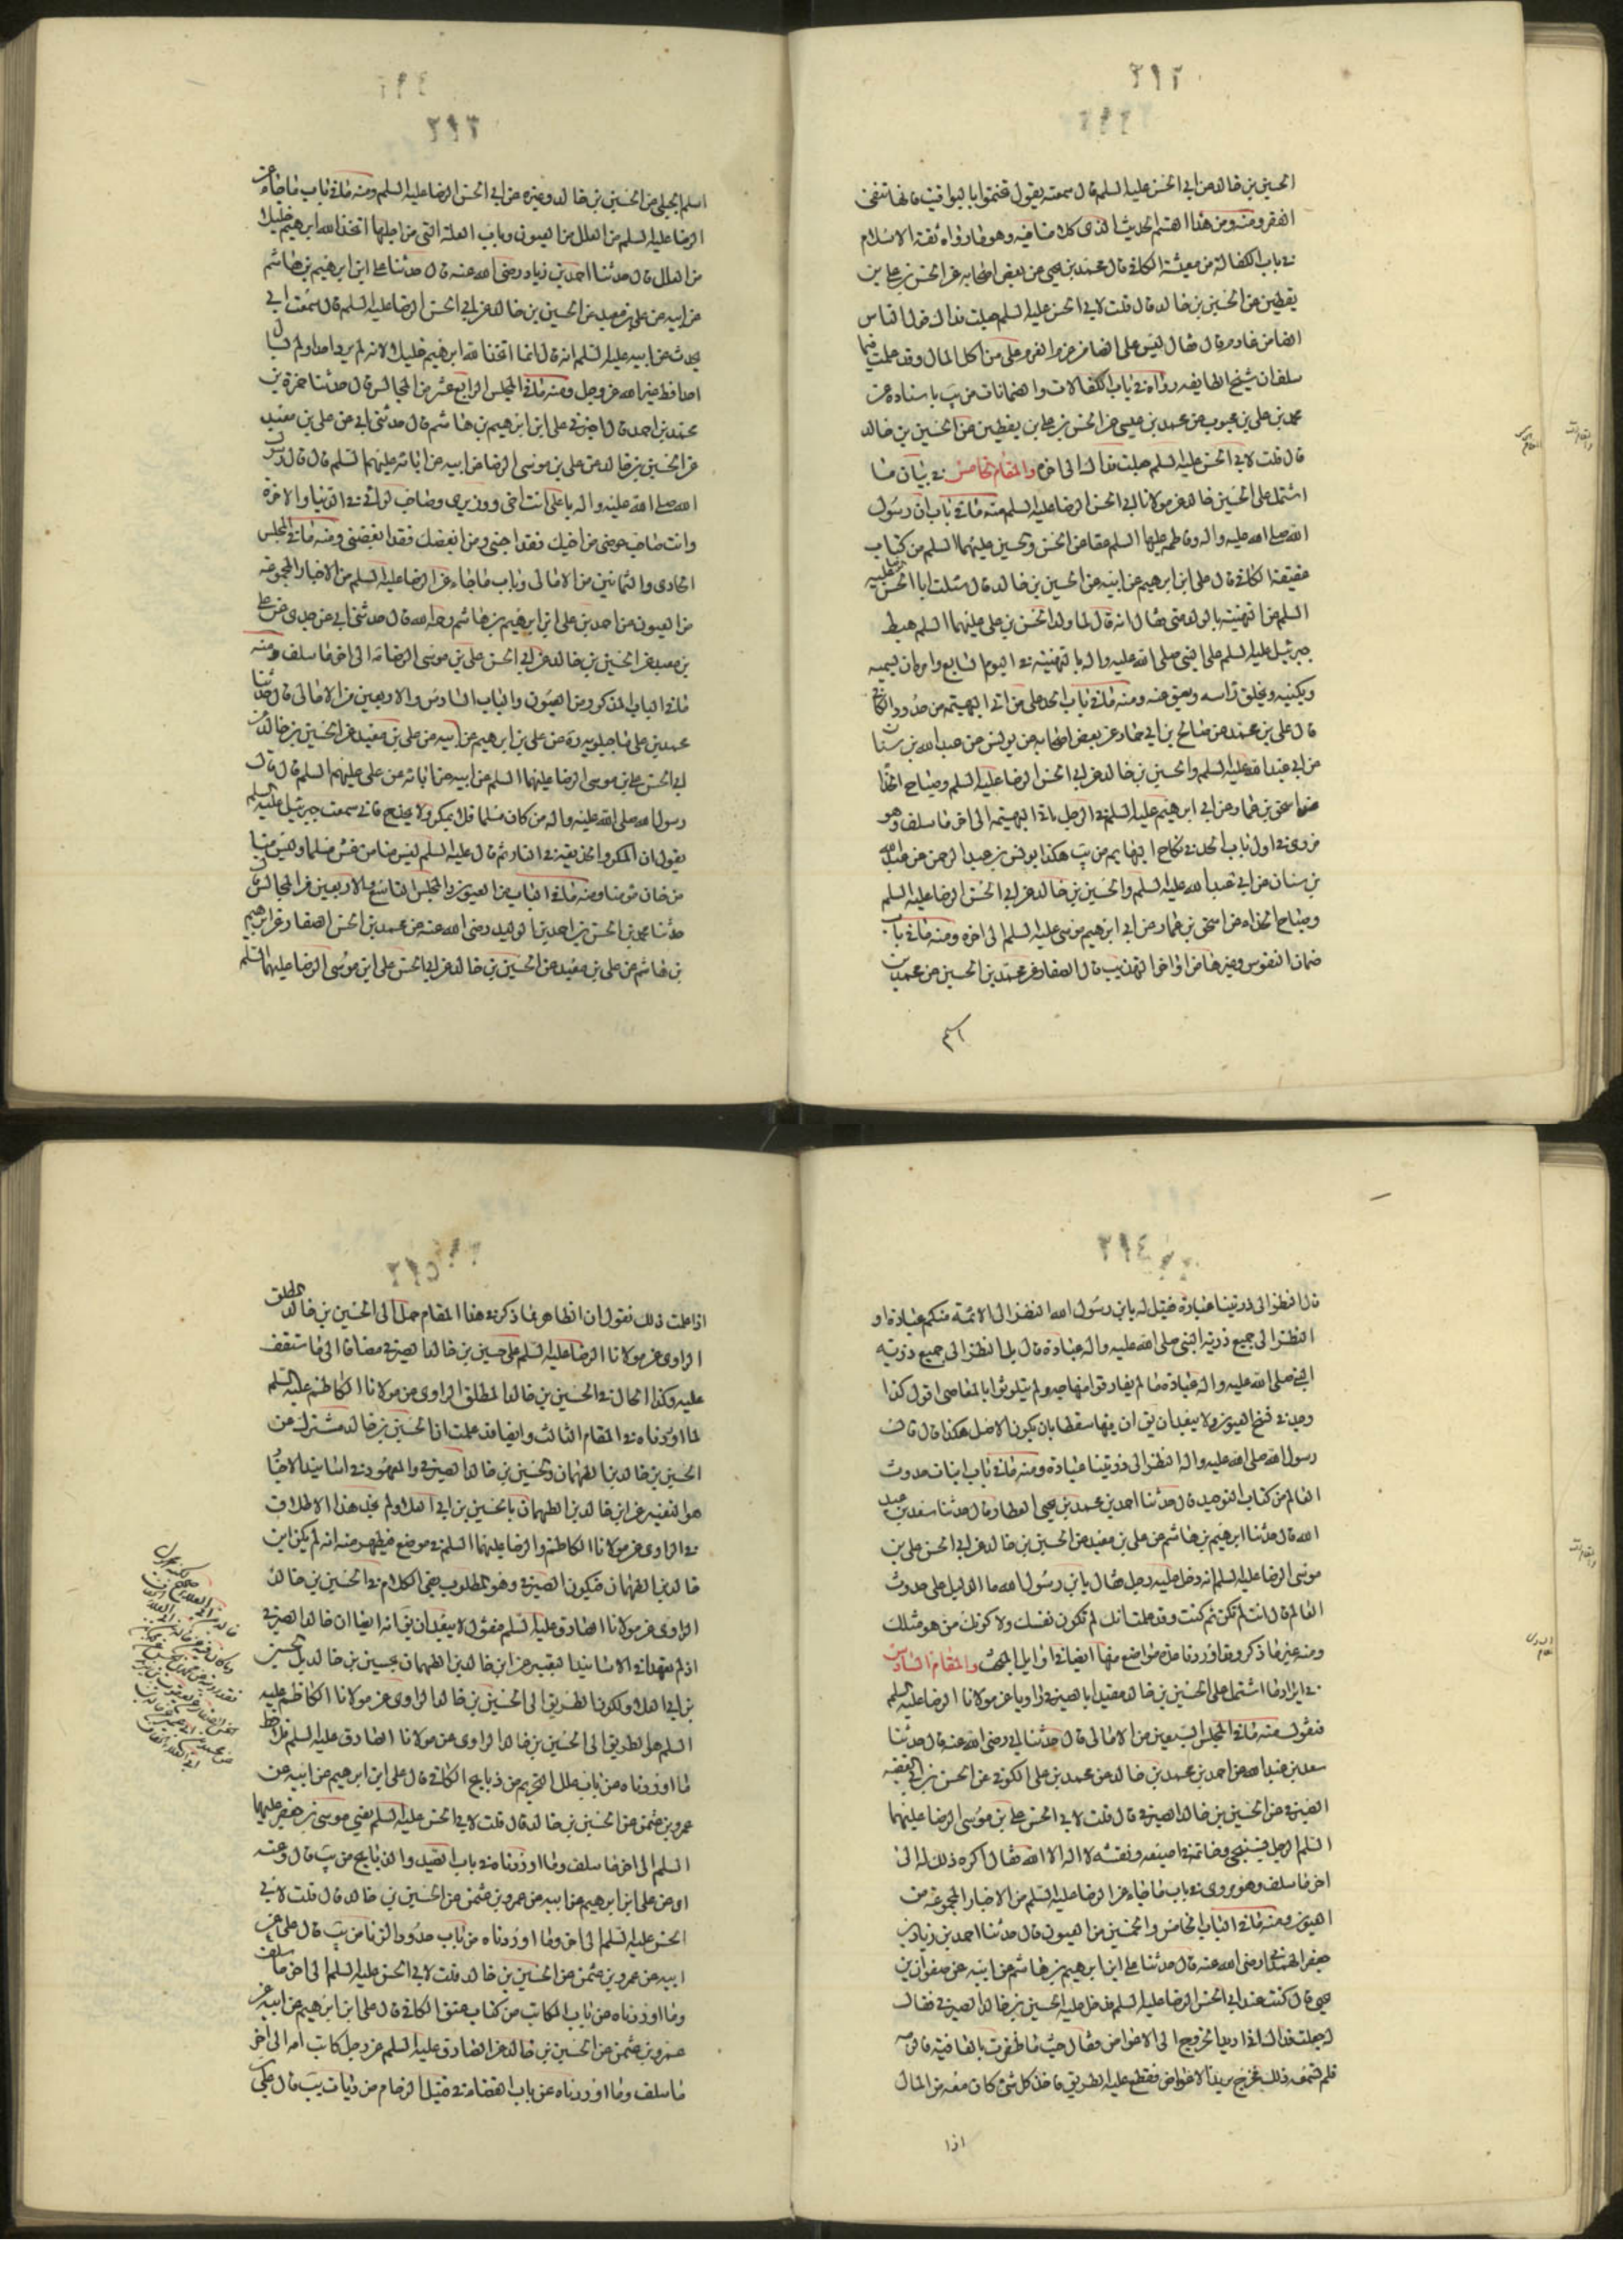 ٢٩٢
الحسين بن خالد عن ابي الحسن عليه السلم قال سمعته يقول تختموا باليواقيت فانها تنفى
الفقر ومنه ومن هذا القسم الحديث الذى كلامنا فيه وهو ما رواه ثقة الاسلام
في باب الكفالة من معيشة الكافي قال محمد بن يحيى عن بعض اصحابه عن الحسن بن علي بن
يقطين عن الحسين بن خالد قال قلت لابي الحسن عليه السلم جعلت فداك قول الناس
الضامن غارم قال فقال ليس على الضامن غرم الغرم على من اكل المال وقد علمت فيما
سلف ان شيخ الطايفه رواه في باب الكفالات والضمانات من يب باسناده عن
محمد بن علي بن محبوب عن محمد بن عيسى عن الحسن بن علي بن يقطين عن الحسين بن خالد
قال قلت لابي الحسن عليه السلم جعلت فداك الى اخره والمقام الخامس في بيان ما
اشتمل على الحسين خالد عن مولانا ابي الحسن الرضا عليه السلم منه ما في باب ان رسول
الله صلى الله عليه واله وفاطمه عليها السلم عقا عن الحسن والحسين عليهما السلم من كتاب
عقيقة الكافي قال علي ابن ابرهيم عن ابيه عن الحسين بن خالد قال سئلت ابا الحسن الرضا عليه
السلم عن التهنيته بالولد متى فقال انه قال لما ولد الحسن بن علي عليهما السلم هبط
جبرئيل عليه السلم على النبي صلى الله عليه واله بالتهنيته في اليوم السابع وامره ان يسميه
ويكنيه ويحلق راسه ويعق عنه ومنه ما في باب الحد على من اتى البهيمة من حدود الكافي
قال علي بن محمد عن صالح بن ابي حماد عن بعض اصحابه عن يونس عن عبد الله بن سنان
عن ابي عبد الله عليه السلم والحسين بن خالد عن ابي الحسن الرضا عليه السلم وصباح الحذا
عن اسحق بن عمار عن ابي ابرهيم عليه السلم في الرجل ياتي البهيمة الى اخر ما سلف وهو
مروى في اول باب الحد في نكاح البهايم من يب هكذا يونس بن عبد الرحمن عن عبد الله
بن سنان عن ابي عبد الله عليه السلم والحسين بن خالد عن ابي الحسن الرضا عليه السلم
وصباح الحذاء عن اسحق بن عمار عن ابي ابرهيم موسى عليه السلم الى اخره ومنه ما في باب
ضمان النفوس وغيرها من اواخر التهذيب قال الصفار عن محمد بن الحسين عن محمد بن
اسلم
٢٩٣
اسلم الجبلي عن الحسين بن خالد وغيره عن ابي الحسن الرضا عليه السلم ومنه ما في باب ما جاء عن
الرضا عليه السلم من العلل من العيون وباب العلة التي من اجلها اتخذ الله ابرهيم خليلا
من العلل قال حدثنا احمد بن زياد رضى الله عنه قال حدثنا علي ابن ابرهيم بن هاشم
عن ابيه عن علي بن معبد عن الحسين بن خالد عن ابي الحسن الرضا عليه السلم قال سمعت ابي
يحدث عن ابيه عليه السلم انه قال انما اتخذ الله ابرهيم خليلا لانه لم يرد احدا ولم يسال
احدا قط غير الله عز وجل ومنه ما في المجلس الرابع عشر من المجالس قال حدثنا حمزة بن
محمد بن احمد قال اخبرني علي ابن ابرهيم بن هاشم قال حدثني ابي عن علي بن معبد
عن الحسين بن خالد عن علي بن موسى الرضا عن ابيه عن ابائه عليهم السلم قال قال رسول
الله صلى الله عليه واله يا على انت اخى ووزيرى وصاحب لوائي في الدنيا والاخرة
وانت صاحب حوضى من احبك فقد احبني ومن ابغضك فقد ابغضني ومنه ما في المجلس
الحادى والثمانين من الامالى وباب ما جاء عن الرضا عليه السلم من الاخبار المجموعه
من العيون عن احمد بن علي ابن ابرهيم بن هاشم رحمه الله قال حدثني ابي عن جدى عن علي
بن معبد عن الحسين بن خالد عن ابي الحسن علي بن موسى الرضا ع الى اخر ما سلف ومنه
ما في الباب المذكور من العيون والباب السادس والاربعين من الامالى قال حدثنا
محمد بن علي ماجيلويه ره عن علي بن ابرهيم عن ابيه عن علي بن معبد عن الحسين بن خالد عن
ابي الحسن علي بن موسى الرضا عليهما السلم عن ابيه عن ابائه عن علي عليهم السلم قال قال
رسول الله صلى الله عليه واله من كان مسلما فلا يمكر ولا يخدع فاني سمعت جبرئيل عليه السلم
يقول ان المكر والخديعة في النار ثم قال عليه السلم ليس منا من غش مسلما وليس منا
من خان مومنا ومنه ما في الباب من العيون والمجلس التاسع والاربعين من المجالس قال
حدثنا محمد بن الحسن بن احمد بن الوليد رضى الله عنه عن محمد بن الحسن الصفار عن ابرهيم
بن هاشم عن علي بن معبد عن الحسين بن خالد عن ابي الحسن علي ابن موسى الرضا عليهما السلم
٢٩٤
قال انظروا الى ذريتنا عبادة فقيل له يا بن رسول الله النظر الى الائمة منكم عبادة او
النظر الى جميع ذرية النبي صلى الله عليه واله عبادة قال بل النظر الى جميع ذرية
النبي صلى الله عليه واله عبادة ما لم يفارقوا منهاجه ولم يتلوثوا بالمعاصى اقول كذا
وجد في نسخ العيون ولا يبعد ان يق ان فيها سقطا بان يكون الاصل هكذا قال قال
رسول الله صلى الله عليه واله النظر الى ذريتنا عبادة ومنه ما في باب اثبات حدوث
العالم من كتاب التوحيد قال حدثنا احمد بن محمد بن يحيى العطار قال حدثنا سعد بن عبد
الله قال حدثنا ابرهيم بن هاشم عن علي بن معبد عن الحسين بن خالد عن ابي الحسن علي بن
موسى الرضا عليه السلم انه دخل عليه رجل فقال يا بن رسول الله ما الدليل على حدوث
العالم قال انت لم تكن ثم كنت وقد علمت انك لم تكون نفسك ولا كونك من هو مثلك
ومنه غير ما ذكر وقد اوردنا مدة مواضع منها ايضا في اوايل المبحث والمقام السادس
في ايراد ما اشتمل على الحسين بن خالد مقيدا بالصيرفي راويا عن مولانا الرضا عليه السلم
فنقول منه ما في المجلس السبعين من الامالى قال حدثنا ابي رضى الله عنه قال حدثنا
سعد بن عبد الله عن احمد بن محمد بن خالد عن محمد بن علي الكوفي عن الحسن بن ابي العقبه
الصيرفي عن الحسين بن خالد الصيرفي قال قلت لابي الحسن علي بن موسى الرضا عليهما
السلم الرجل يستنجى وخاتمه في اصبعه ونقشه لا اله الا الله فقال اكره ذلك له الى
اخر ما سلف وهو مروى في باب ما جاء عن الرضا عليه السلم من الاخبار المجموعه من
العيون ومنه ما في الباب الخامس والخمسين من العيون قال حدثنا احمد بن زياد بن
جعفر الهمداني رضى الله عنه قال حدثنا علي ابن ابرهيم بن هاشم عن ابيه عن صفوان بن
يحيى قال كنت عند ابي الحسن الرضا عليه السلم فدخل عليه الحسين بن خالد الصيرفي فقال
له جعلت فداك اني اريد الخروج الى الاعواض فقال حيث ما ظفرت بالعافية فالزمه
فلم يقنعه ذلك فخرج يريد الاعواض فقطع عليه الطريق فاخذ كل شئ كان معه من المال
اذا
٢٩٥
اذا علمت ذلك نقول ان الظاهر مما ذكر في هذا المقام حمل الى الحسين بن خالد المطلق
الراوى عن مولانا الرضا عليه السلم على حسين بن خالد الصيرفي مضافا الى ما ستقف
عليه وكذا الحال في الحسين بن خالد المطلق الراوى عن مولانا الكاظم عليه السلم
لما اوردناه في المقام الثالث وايضا قد علمت ان الحسين بن خالد مشترك من
الحسين بن خالد بن الطهمان والحسين بن خالد الصيرفي والمعهود في اسانيد الاخبار
هو التعبير عن ابن خالد بن الطهمان بالحسين بن ابي العلا ولم نجد هذا الاطلاق
في الراوى عن مولانا الكاظم والرضا عليهما السلم في موضع فيظهر منه انه لم يكن ابن
خالد بن الطهمان فيكون الصيرفي وهو المطلوب بقي الكلام في الحسين بن خالد
الراوى عن مولانا الصادق عليه السلم فنقول لا يبعد ان يق انه ايضا ابن خالد الصيرفي
اذ لم يعهد في الاسانيد التعبير عن ابن خالد بن الطهمان بحسين بن خالد بل بحسين
بن ابي العلا ولكون الطريق الى الحسين بن خالد الراوى عن مولانا الكاظم عليه
السلم هو الطريق الى الحسين بن خالد الراوى عن مولانا الصادق عليه السلم فلاحظ
ما اوردناه من باب علل التحريم من ذبايح الكافي قال علي ابن ابرهيم عن ابيه عن
عمرو بن عثمن عن الحسين بن خالد قال قلت لابي الحسن عليه السلم يعني موسى بن جعفر عليهما
السلم الى اخر ما سلف وما اوردناه في باب الصيد والذبايح من يب قال وعنه
اى عن علي ابن ابرهيم عن ابيه عن عمرو بن عثمن عن الحسين بن خالد قال قلت لابي
الحسن عليه السلم الى اخره وما اوردناه من باب حدود الزنا من يب قال علي عن
ابيه عن عمرو بن عثمن عن الحسين بن خالد قلت لابي الحسن عليه السلم الى اخر ما سلف
وما اوردناه من باب المكاتب من كتاب عتق الكافي قال علي ابن ابرهيم عن ابيه عن
عمرو بن عثمن عن الحسين بن خالد عن الصادق عليه السلم عن رجل كاتب امة الى اخر
ما سلف وما اوردناه عن باب القضاء في قتيل الزحام من ديات يب قال علي